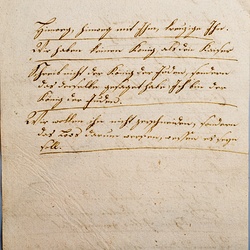 Hinweg, hinweg mit Ihm, kreuzige Ihn.
Wir haben keinen König, als den Kaiser
Schreib nicht der König der Juden, sondern
das derselbe gesaget habe: Ich bin der
König der Juden.
Wir wollen ihn nicht zerschneiden, sondern
das Loos darum werfen, wessen es seyn
soll.